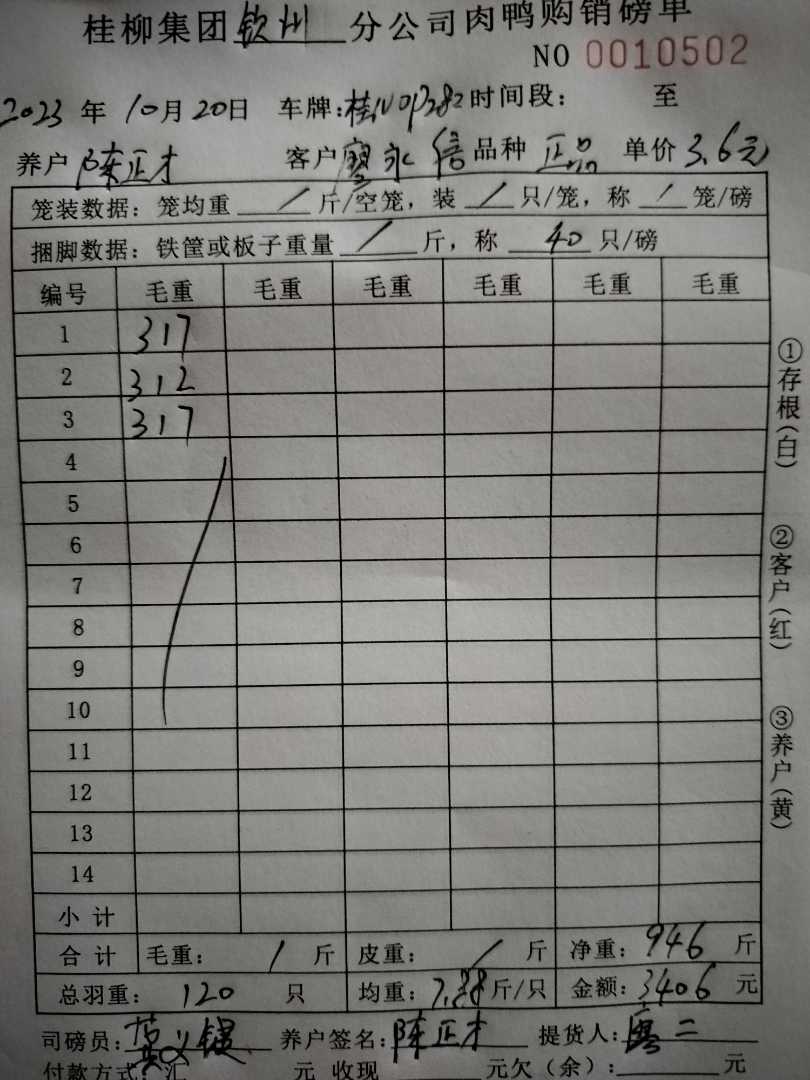 桂柳集团钦州分公司肉鸭购销磅单
NO 0010502
2023年10月20日 车牌:桂N0P282 时间段: 至
养户 陈正才 客户 廖永信 品种 正品 单价 3.6元
笼装数据: 笼均重 / 斤/空笼, 装 / 只/笼, 称 / 笼/磅
捆脚数据: 铁筐或板子重量 / 斤, 称 40 只/磅
编号 毛重 毛重 毛重 毛重 毛重 毛重
1 317
2 312
3 317
4
5
6
7
8
9
10
11
12
13
14
小计
合计 毛重: / 斤 皮重: / 斤 净重: 946 斤
总羽重: 120 只 均重: 7.88斤/只 金额: 3406 元
司磅员: 养户签名: 陈正才 提货人: 二
付款方式: 汇 元 收现 元欠(余): 元
①存根(白)
②客户(红)
③养户(黄)